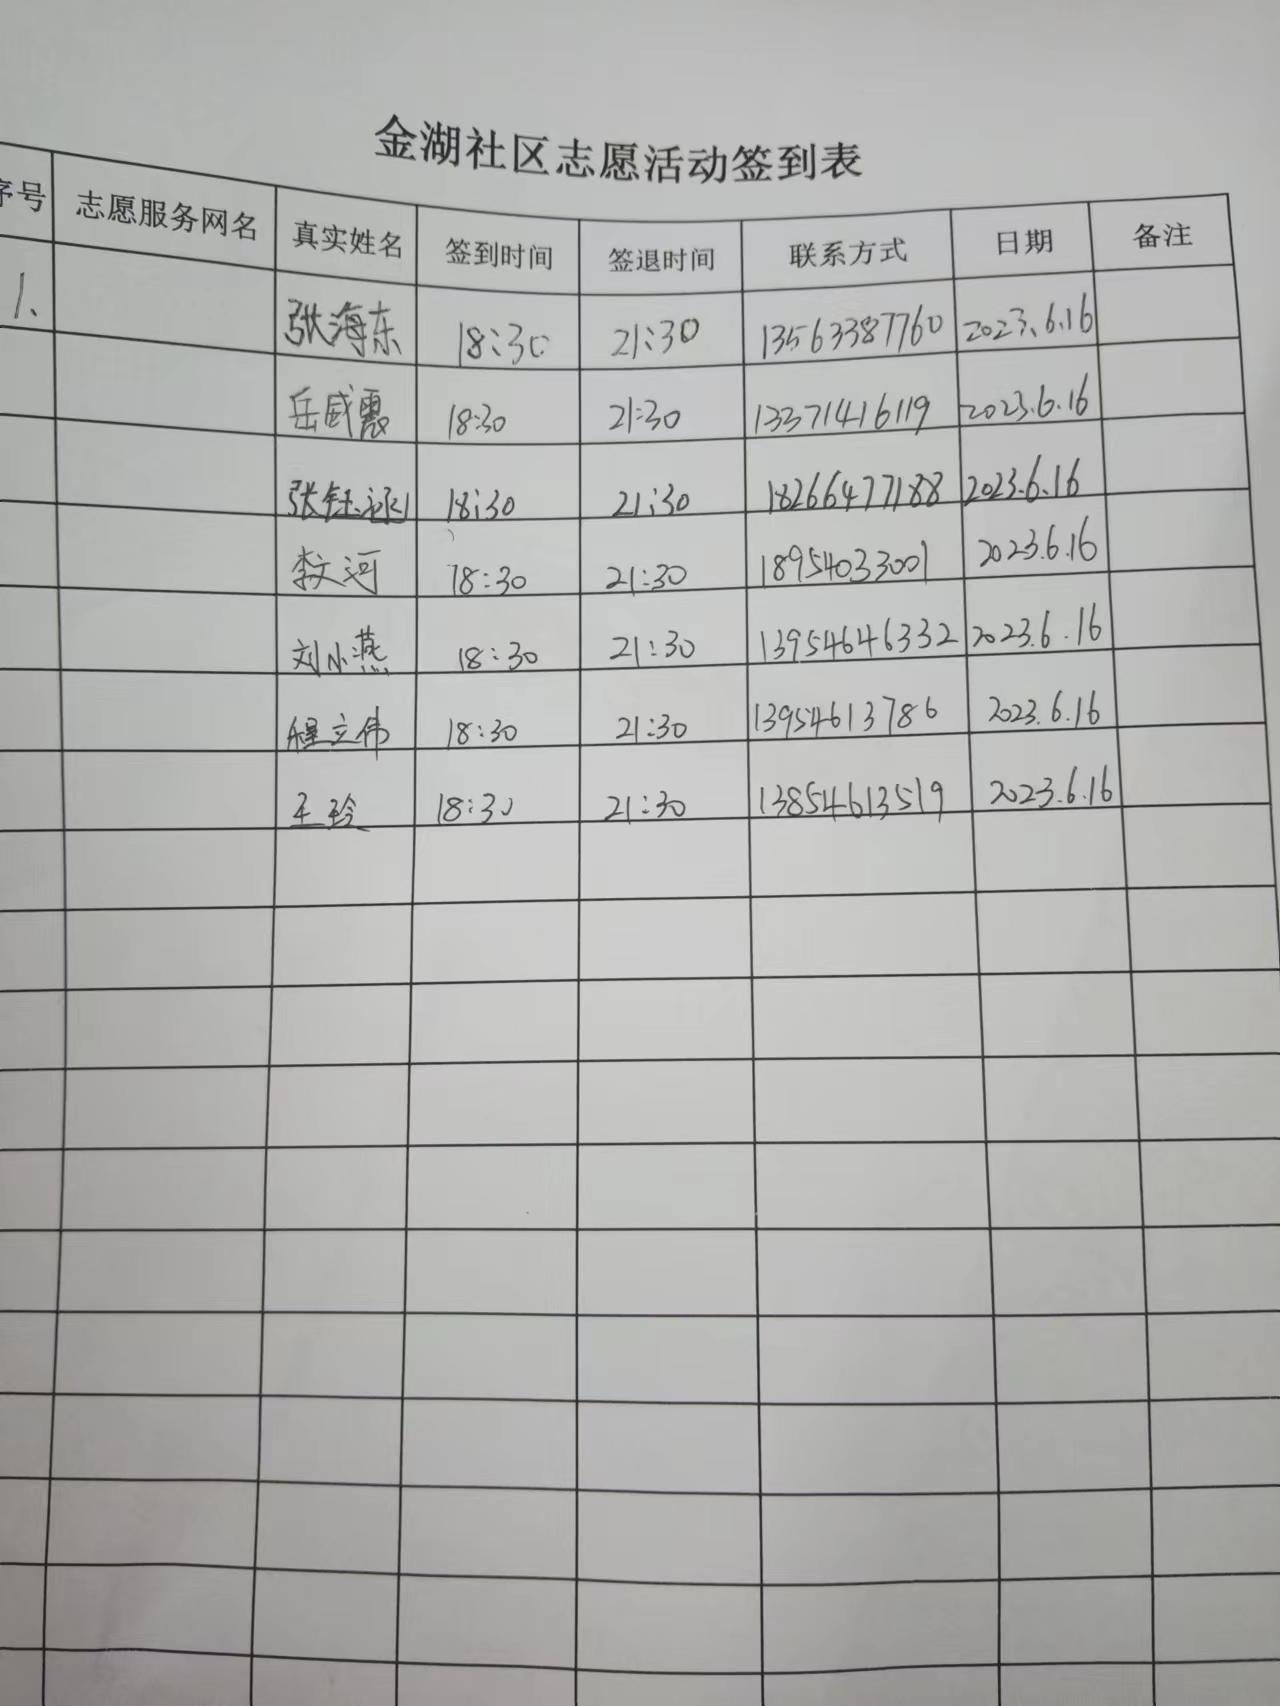 金湖社区志愿活动签到表
序号 志愿服务网名 真实姓名 签到时间 签退时间 联系方式 日期 备注
1、 张海东 18:30 21:30 13563387760 2023.6.16
岳威震 18:30 21:30 13371416119 2023.6.16
张钰 18:30 21:30 18266477188 2023.6.16
李文河 18:30 21:30 18954033001 2023.6.16
刘小燕 18:30 21:30 13954646332 2023.6.16
程立伟 18:30 21:30 13954613786 2023.6.16
王玲 18:30 21:30 13854613519 2023.6.16